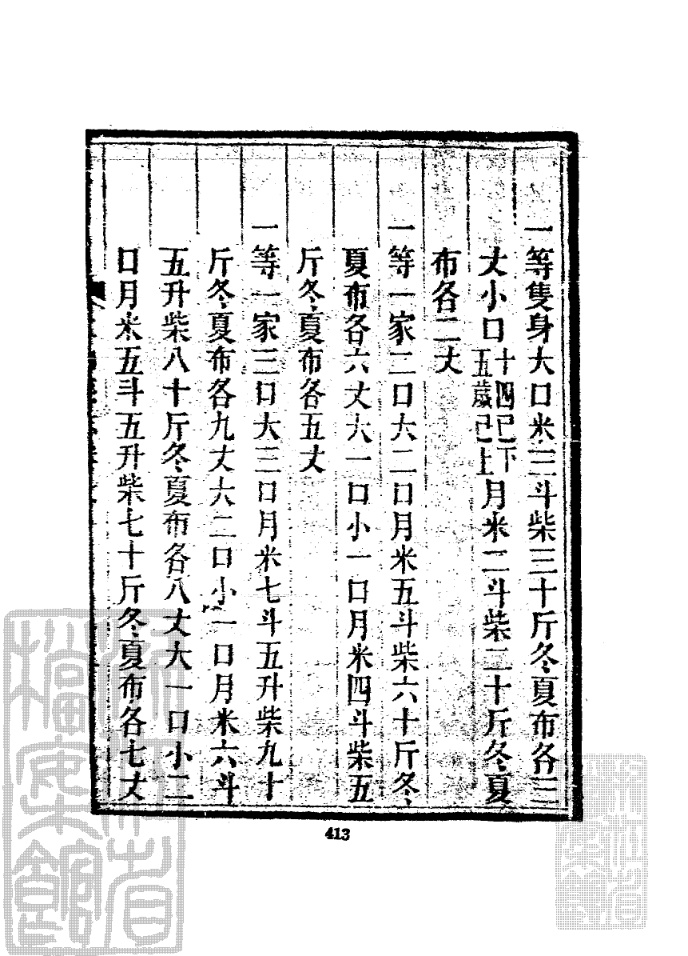 一等隻身大口米三斗柴三十斤冬夏布各三
丈小口十四已下五歲已上月米二斗柴二十斤冬夏
布各二丈
一等一家二口大二口月米五斗柴六十斤冬
夏布各六丈大一口小一口月米四斗柴五
斤冬夏布各五丈
一等一家三口大三口月米七斗五升柴九十
斤冬夏布各九丈大二口小一口月米六斗
五升柴八十斤冬夏布各八丈大一口小二
口月米五斗五升柴七十斤冬夏布各七丈
413